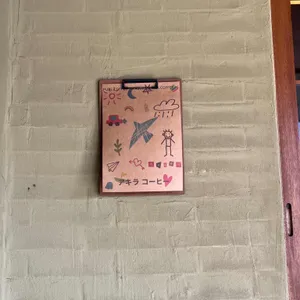 アキラ コーヒー